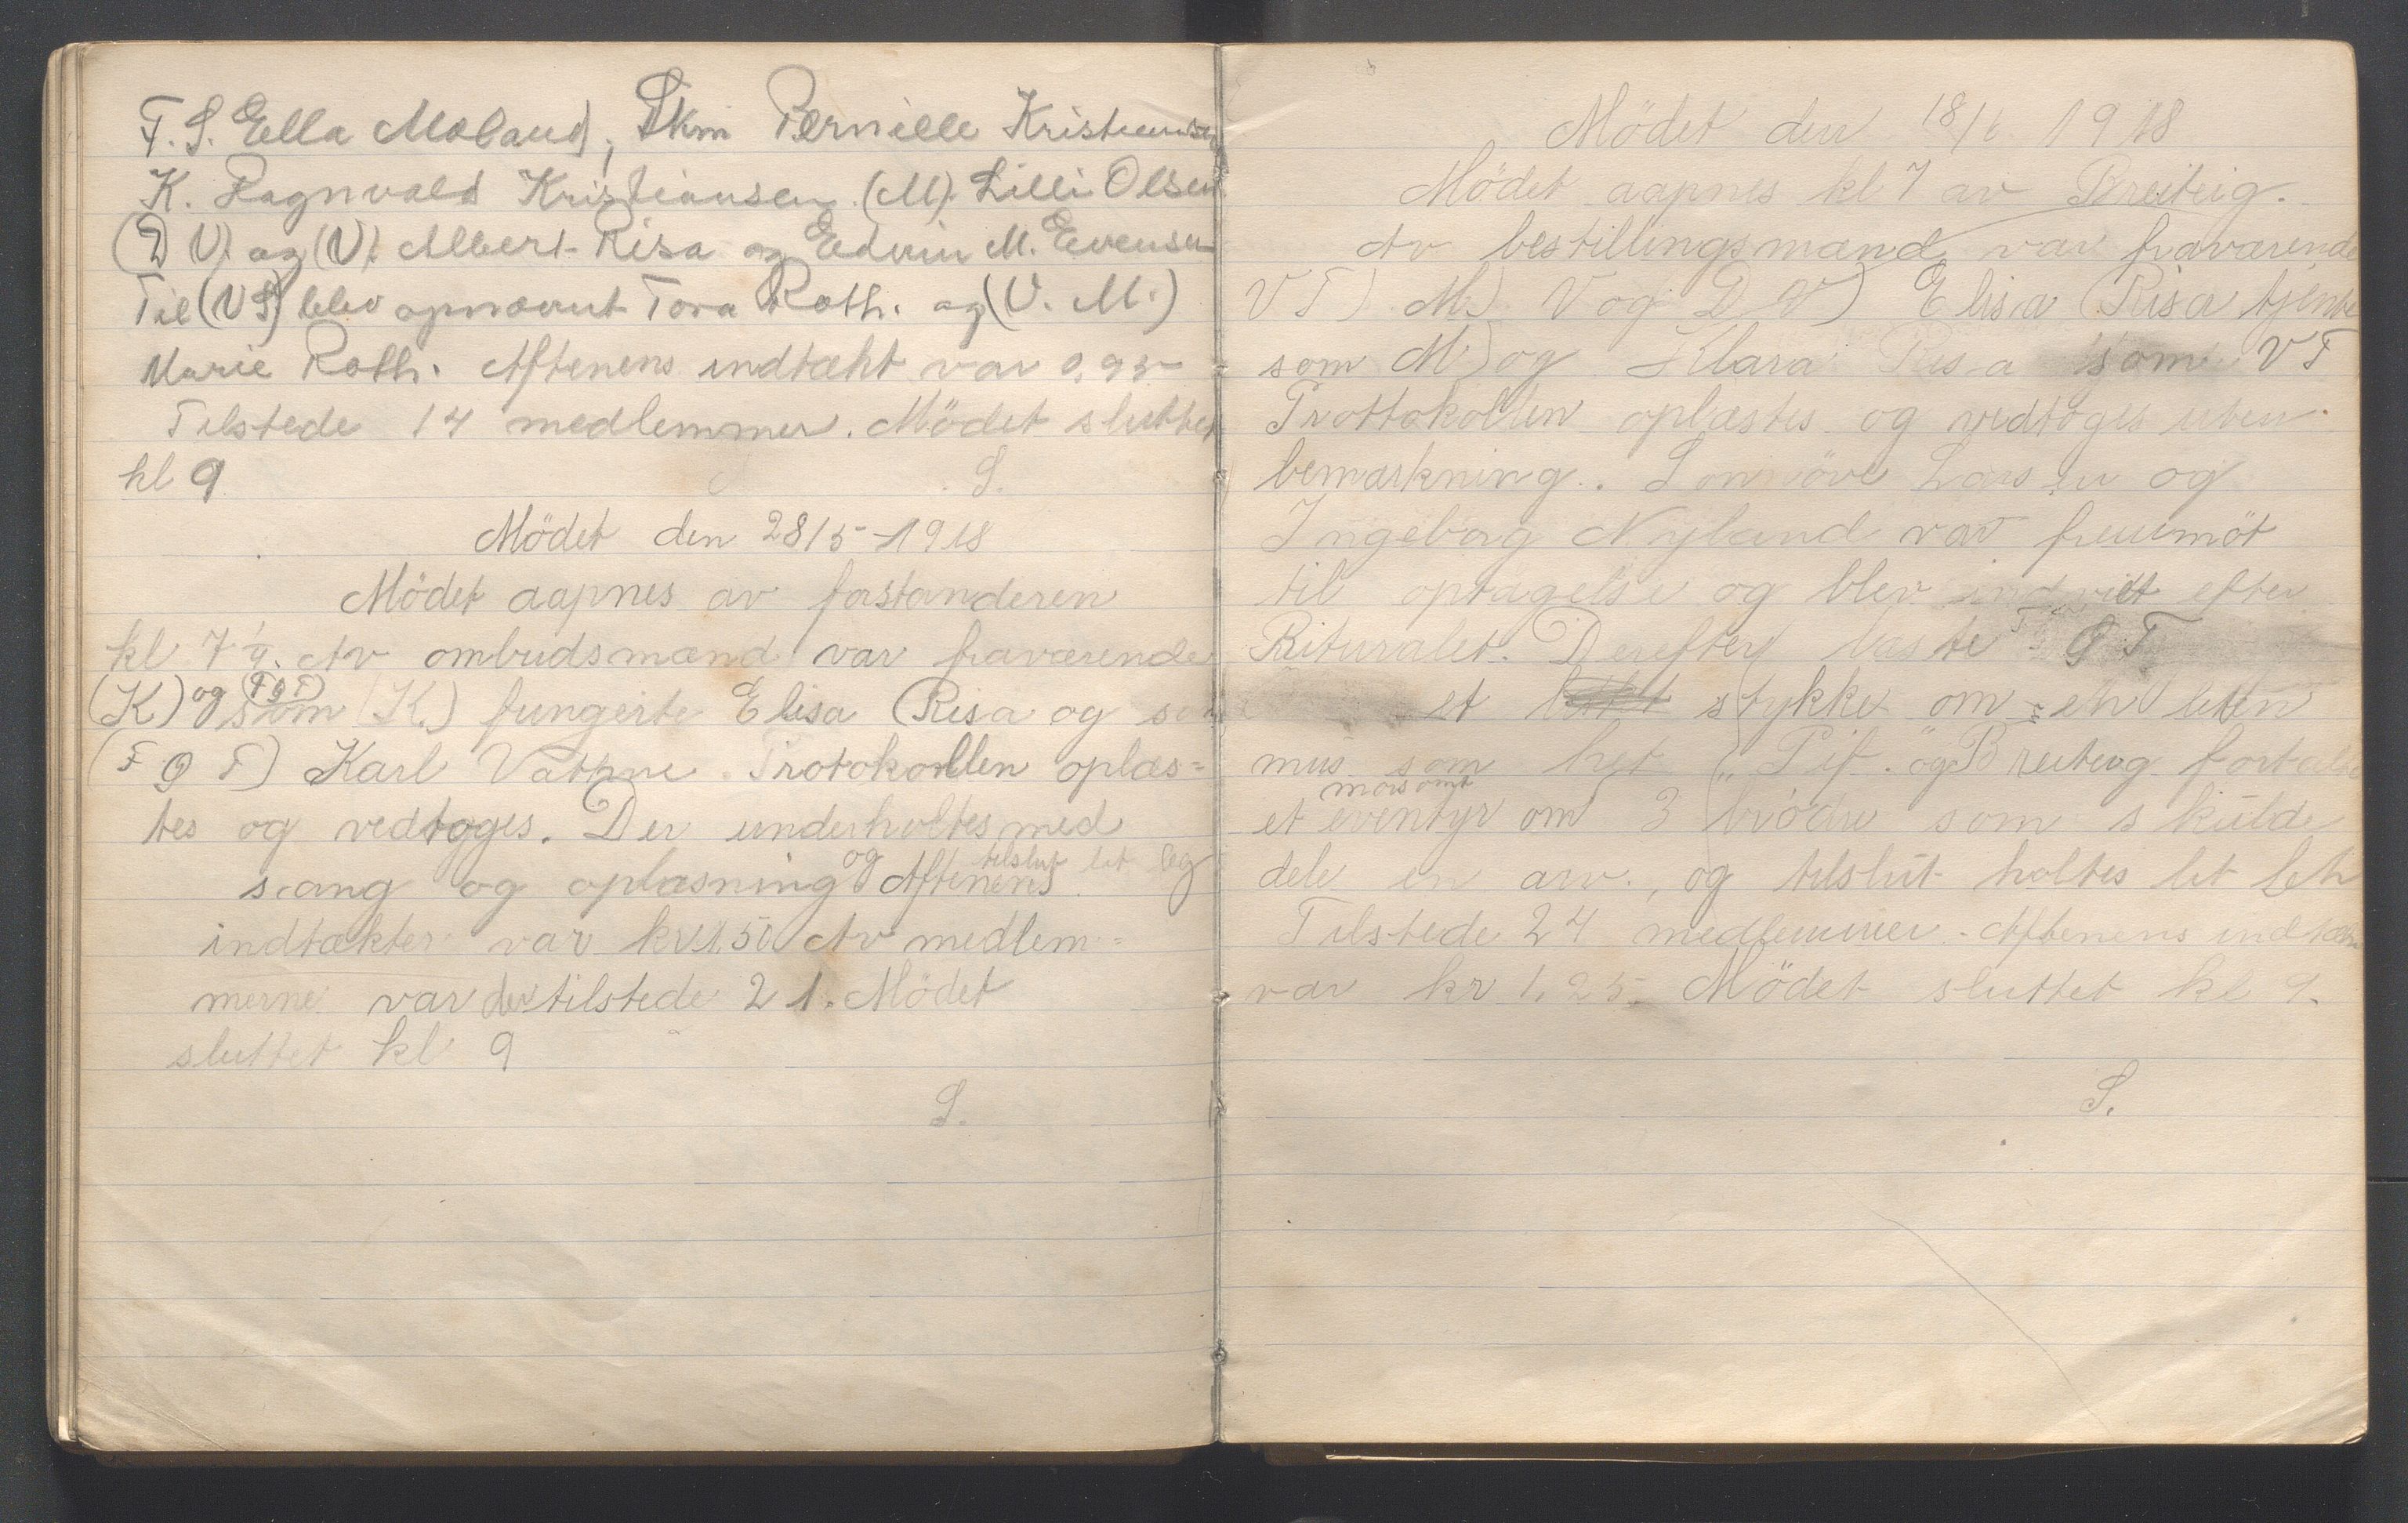 F. S. Ella Moland, Skm Pernille Kristiansen
K. Ragnvald Kristiansen (M). Lilli Olsen
(D V). og (V). Albert Risa og Edvin M. Evensen
Til (VS) blev opnævnt Tora Roth. og (V. M.)
Marie Roth. Aftenens indtækt var 0,95
Tilstede 14 medlemmer. Mödet sluttet
kl 9 S.
Mödet den 28/5-1918
Mödet aapnes av forstanderen
kl 7½. Av ombudsmænd var fraværende
(K) og (F G T) som (K.) fungerte Elisa Risa og som
(F G T) Karl Vathne. Protokollen oplæs=
tes og vedtoges. Der underholtes med
sang og oplæsning og tilslut let leg Aftenens
indtækter var kr 1,50 Av medlem=
merne var der tilstede 21. Mödet
sluttet kl 9
S.
Mödet den 18/6 1918
Mödet aapnes kl 7 av Breiteig.
Av bestillingsmænd var fraværende
V T) M.) V og D V) Elisa Risa tjente
som M.) og Klara Risa som V T
Prottokollen oplæstes og vedtoges uten
bemærkning. Sonnöve Larsen og
Ingeborg Nyland var fremmöt
til optagelse og blev indviet efter
Rituralet. Derefter læste F G T
et stykke om en liten
mus som het „Pif" og Breiteig fortalte
et morsomt eventyr om 3 brödre som skulde
dele en arv., og tilslut holtes let lek
Tilstede 24 medlemmer. Aftenens indtækt
var kr 1.25. Mödet sluttet kl 9.
S.